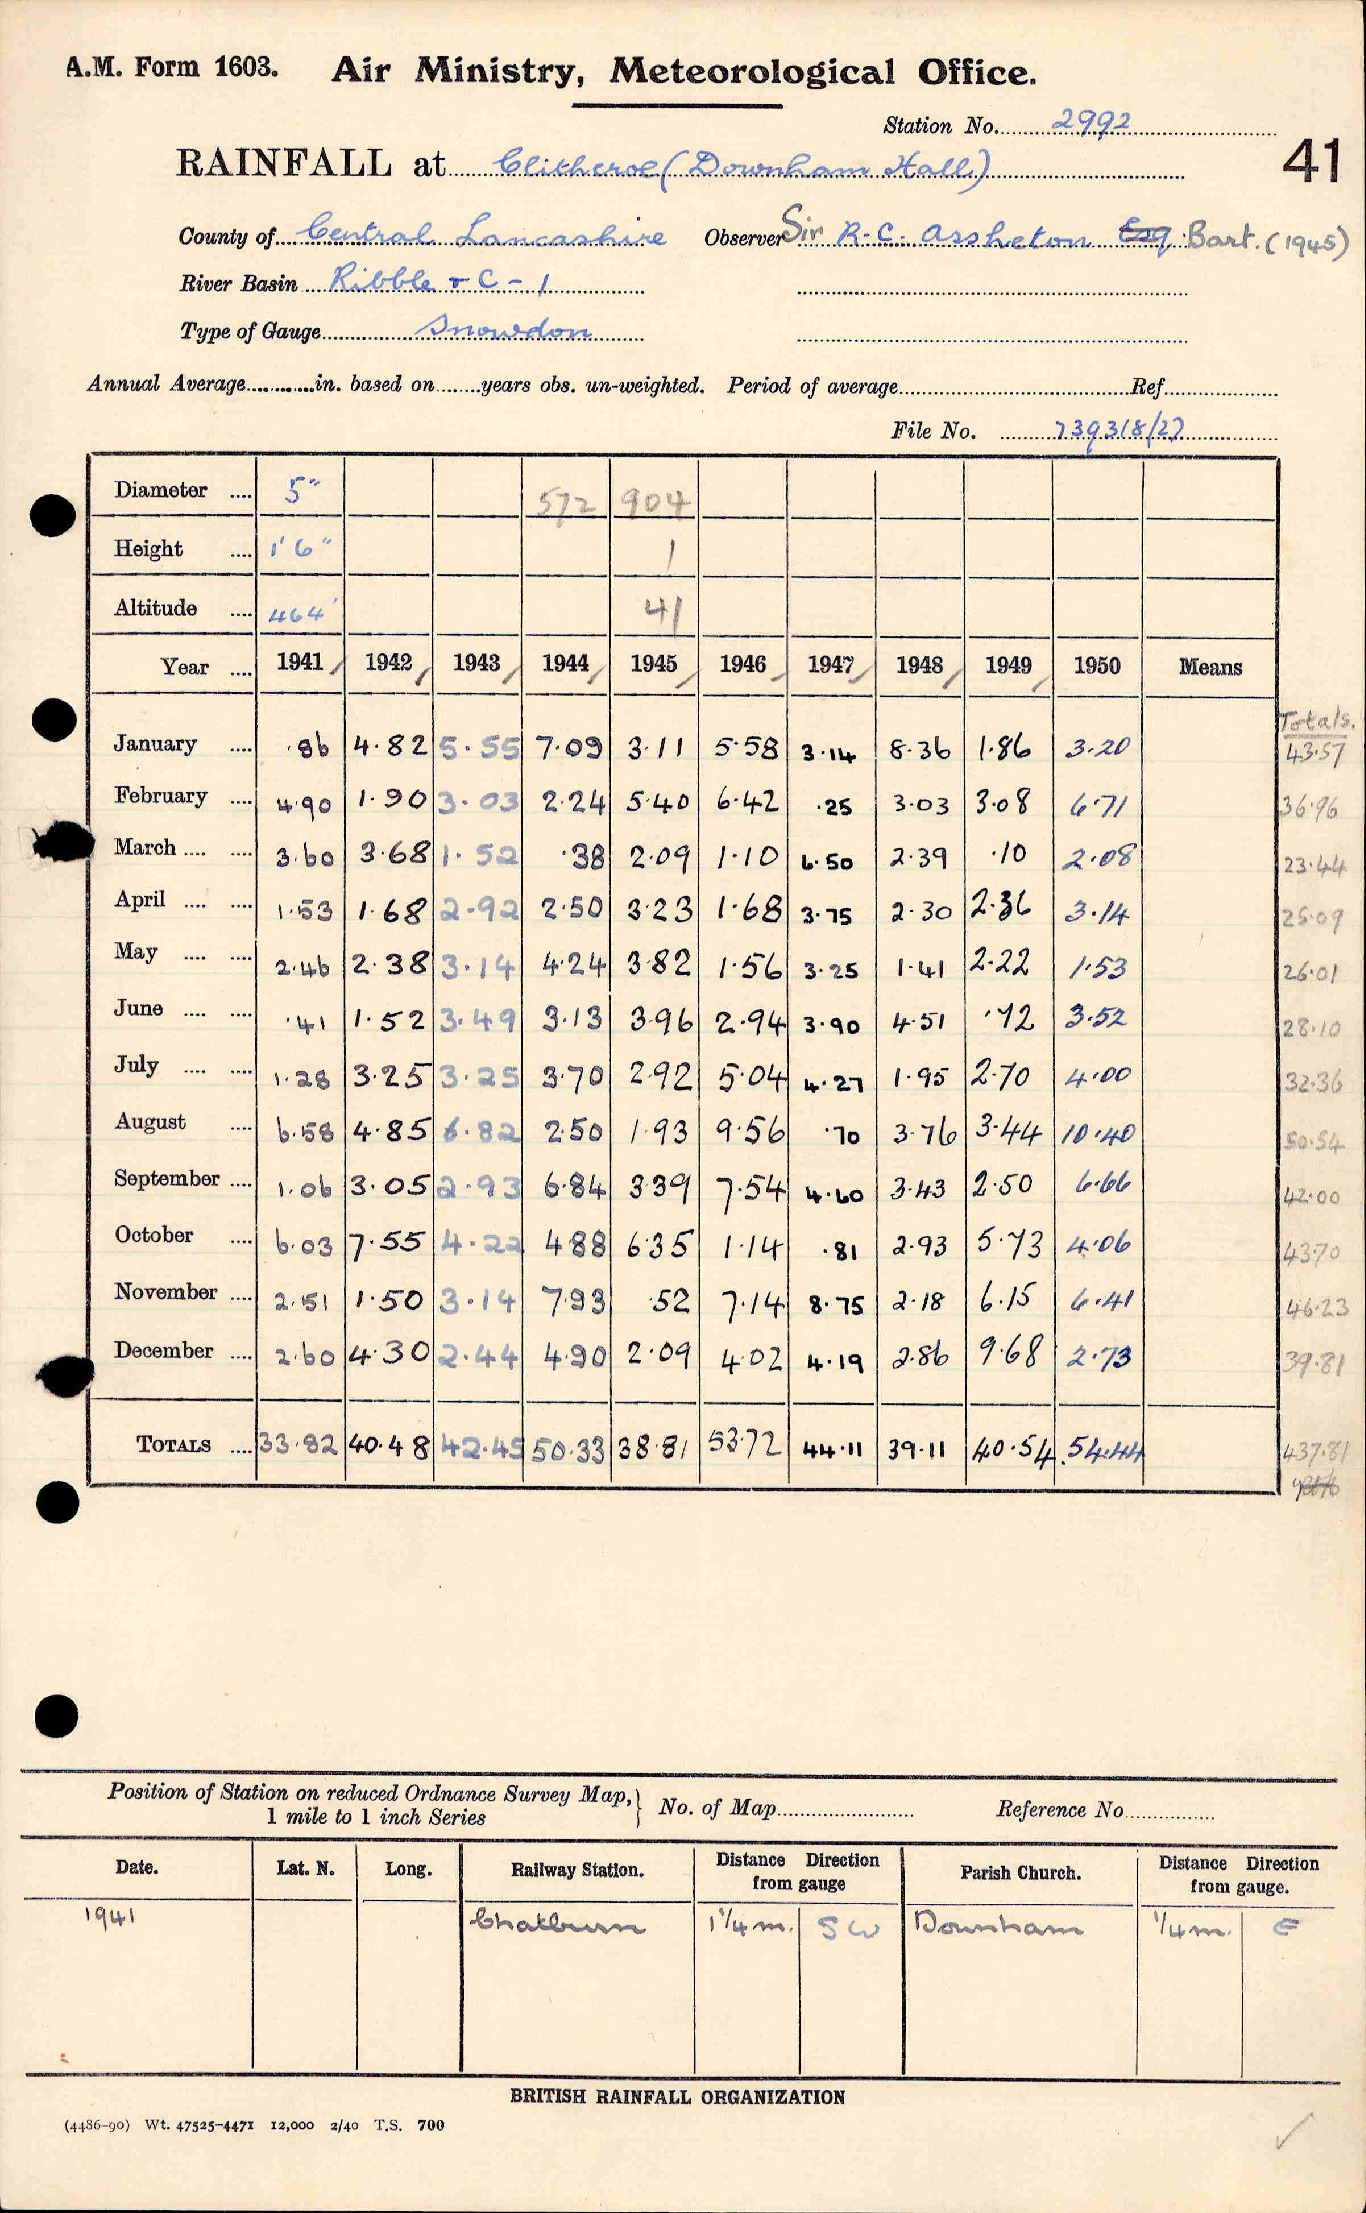 A.M. Form 1603. Air Ministry, Meteorological Office.
Station No. 2992
41
RAINFALL at Clitheroe (Downham Hall)
County of Central Lancashire Observer Sir R.C. Assheton Esq Bart. (1945)
River Basin Ribble + C-1
Type of Gauge Snowdon
Annual Average in. based on years obs. un-weighted. Period of average Ref.
File No. 739318/27
Diameter 5" 572 904
Height 1'6" 1
Altitude 464' 41
Year 1941 1942 1943 1944 1945 1946 1947 1948 1949 1950 Means
Totals.
January .86 4.82 5.55 7.09 3.11 5.58 3.14 8.36 1.86 3.20 43.57
February 4.90 1.90 3.03 2.24 5.40 6.42 .25 3.03 3.08 6.71 36.96
March 3.60 3.68 1.52 .38 2.09 1.10 6.50 2.39 .10 2.08 23.44
April 1.53 1.68 2.92 2.50 3.23 1.68 3.75 2.30 2.36 3.14 25.09
May 2.46 2.38 3.14 4.24 3.82 1.56 3.25 1.41 2.22 1.53 26.01
June .41 1.52 3.49 3.13 3.96 2.94 3.90 4.51 .72 3.52 28.10
July 1.28 3.25 3.25 3.70 2.92 5.04 4.27 1.95 2.70 4.00 32.36
August 6.58 4.85 6.82 2.50 1.93 9.56 .70 3.76 3.44 10.40 50.54
September 1.06 3.05 2.93 6.84 3.39 7.54 4.60 3.43 2.50 6.66 42.00
October 6.03 7.55 4.22 4.88 6.35 1.14 .81 2.93 5.73 4.06 43.70
November 2.51 1.50 3.14 7.93 .52 7.14 8.75 2.18 6.15 6.41 46.23
December 2.60 4.30 2.44 4.90 2.09 4.02 4.19 2.86 9.68 2.73 39.81
TOTALS 33.82 40.48 42.45 50.33 38.81 53.72 44.11 39.11 40.54 54.44 437.81
Position of Station on reduced Ordnance Survey Map, 1 mile to 1 inch Series No. of Map Reference No.
Date. Lat. N. Long. Railway Station. Distance Direction from gauge Parish Church. Distance Direction from gauge.
1941 Chatburn 1¼ m. SW Downham ¼ m. E
BRITISH RAINFALL ORGANIZATION
(4486-90) Wt. 47525-4471 12,000 2/40 T.S. 700